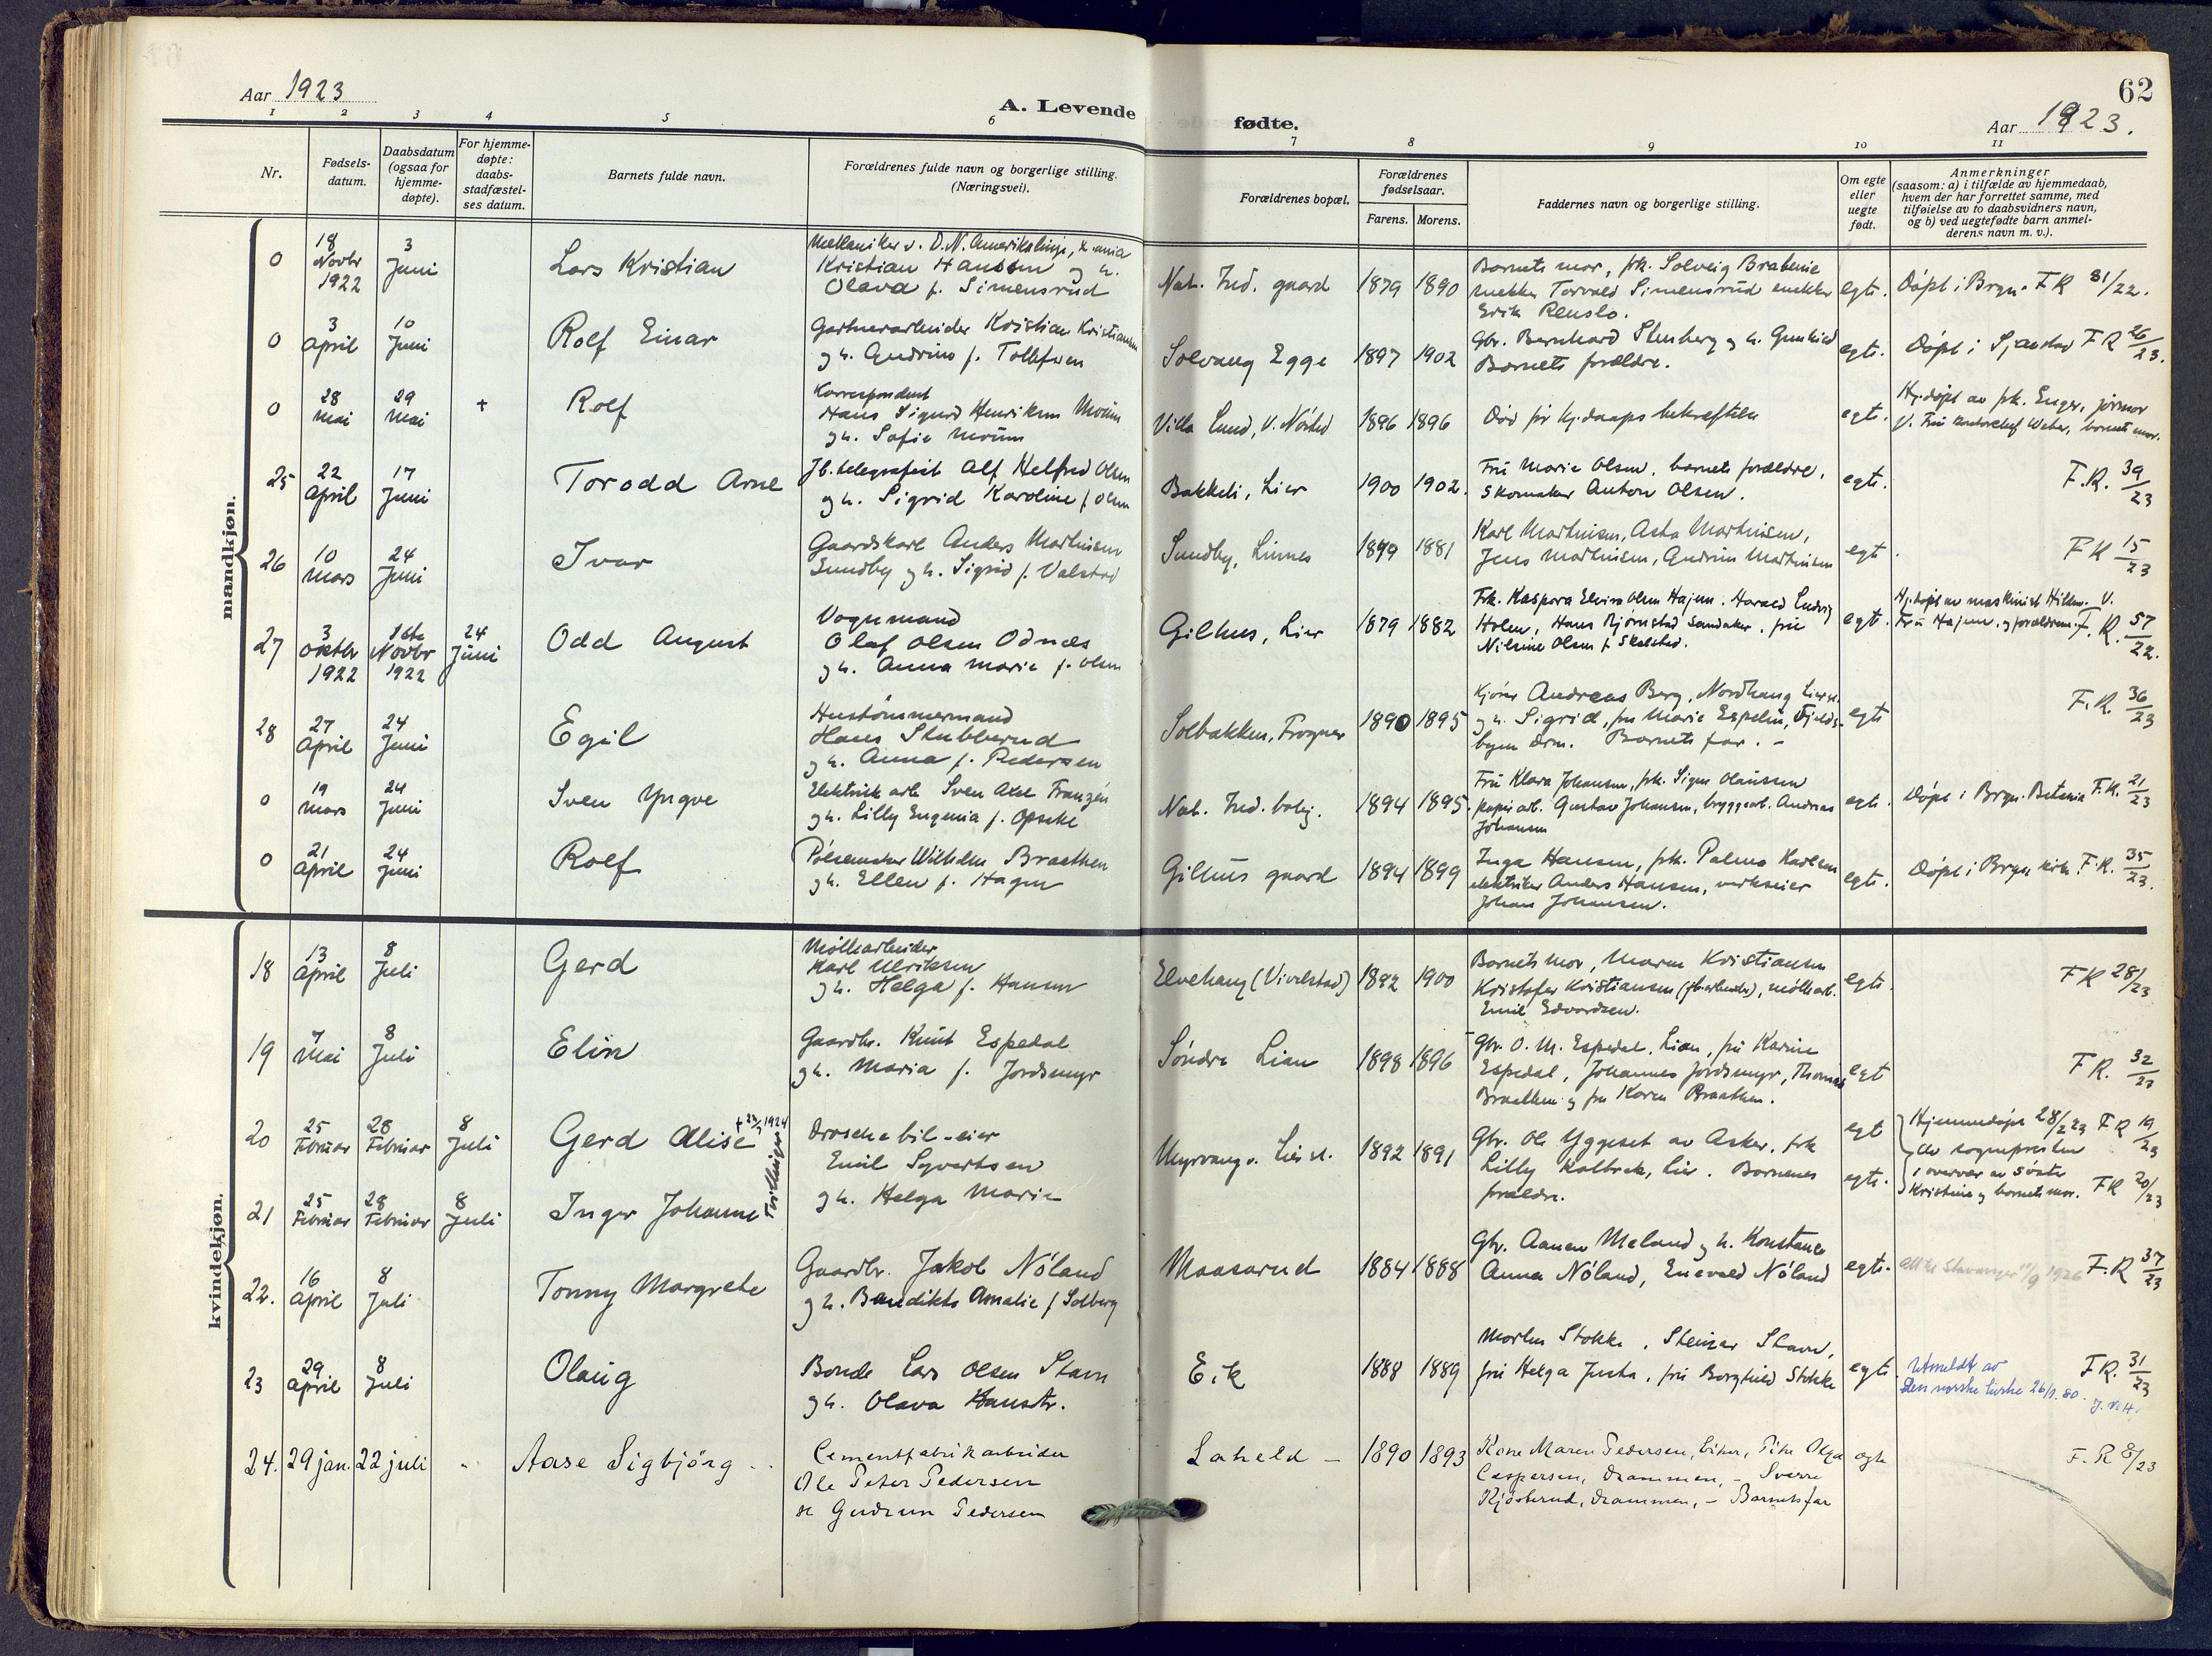 62
Aar 1923
A. Levende
fødte.
Aar 1923.
1 2 3 4 5 6 7 8 9 10 11
Nr.
Fødsels-
datum.
Daabsdatum
(ogsaa for
hjemme-
døpte).
For hjemme-
døpte:
daabs-
stadfæstel-
ses datum.
Barnets fulde navn.
Forældrenes fulde navn og borgerlige stilling.
(Næringsvei).
Forældrenes bopæl.
Forældrenes
fødselsaar.
Farens. Morens.
Faddernes navn og borgerlige stilling.
Om egte
eller
uegte
født.
Anmerkninger
(saasom: a) i tilfælde av hjemmedaab,
hvem der har forrettet samme, med
tilføielse av to daabsvidners navn,
og b) ved uegtefødte barn anmel-
derens navn m. v.).
mandkjøn.
0
18 Novbr 1922
3 Juni
Lars Kristian
Mekaniker v. D. N. Amerikalinje,
Kristian Hansen og h.
Olava f. Simensrud
Nat. Ind. gaard
1879 1890
Barnets mor, frk. Solveig
Torvald Simensrud
Erik Renslo.
egte.
Døpt i Bragn. F R 81/22.
0
3 April
10 Juni
Rolf Einar
Gartnerarbeider Kristian Kristiansen
og h. Gudrun f. Tollefsen
Solvang Egge
1897 1902
Gbr. Bernhard Stenberg og h. Gunhild
Barnets forældre.
egte.
Døpt i Sjaastad F R 26/23.
0
28 Mai
29 Mai
+
Rolf
Korrespondent
Hans Sigurd Henriksen Moum
og h. Sofie Moum
Villa Lund, v. Nøsted
1896 1896
Død før hj.daaps bekræftelse
egte.
Hj.døpt av frk. Enger, jormor
V. Fru Kontorchef Weber, barnets mor.
25
22 April
17 Juni
Torodd Arne
Jb.telegrafist Alf Helfred Olsen
og h. Sigrid Karoline f. Olsen
Bakkeli, Lier
1900 1902.
Fru Marie Olsen, barnets forældre,
Skomaker Anton Olsen.
egte.
F.R. 39/23
26
10 Mars
24 Juni
Ivar
Gaardskarl Anders Martinsen
Sundby og h. Sigrid f. Valstad
Sundby, Linnes
1881
Karl Martinsen, Asta Martinsen,
Jens Martinsen, Gudrun Martinsen
egte.
F R 15/23
27
3 oktbr 1922
1ste Novbr 1922
24 Juni
Odd August
Vognmand
Olaf Olsen Odnæs
og h. Anna Marie f. Olsen
Gilhus, Lier
1879 1882
Frk. Kaspara Elvira Olsen Hajum. Harald Ludvig
Holen, Hans Bjørnstad Sandaker, fru
Nilsine Olsen f. Skalstad.
egte.
Hj.døpt av maskinist Hillm. V.
Fru Hajum, og forældrene. F. R. 57/22.
28
27 April
24 Juni
Egil
Hustømmermand
Hans Stubberud
og h. Anna f. Pedersen
Solbakken, Frogner
1890 1895
Kjører Andreas Berg, Nordhaug Lier st.
og h. Sigrid, fru Marie Espelin, Fjelds-
byen Drm. Barnets far. -
egte
F.R. 36/23
0
19 Mars
24 Juni
Sven Yngve
Elektrisk arb. Sven Axel Franzén
og h. Lilly Eugenia f. Opseth
Nat. Ind. bolig.
1894 1895.
Fru Klara Johansen, frk. Signe Olaussen
papirarb. Gustav Johansen, bryggearb. Andreas
Johansen
egte.
Døpt i Bragn. Betania F.R. 21/23
0
21 April
24 Juni
Rolf
Pølsemaker Wilhelm Braathen
og h. Ellen f. Hagen
Gilhus gaard
1894 1899
Inga Hansen, frk. Palma Karlsen
elektriker Anders Hansen, verkseier
Johan Johansen.
egte.
Døpt i Bragn. kirke F.R. 35/23.
kvindekjøn.
18
13 April
8 Juli
Gerd
Møllearbeider
Karl Ulriksen
og h. Helga f. Hansen
Elvehaug (Vivelstad)
1892 1900
Barnets mor, Maren Kristiansen
Kristofer Kristiansen (jb.arbeider), møllearb.
Emil Edvardsen.
egte.
F R 28/23
19
7 Mai
8 Juli
Elin
Gaardbr. Knut Espedal
og h. Maria f. Jordsmyr
Søndre Lian
1898 1896
Gbr. O. M. Espedal, Lian, fru Karine
Espedal, Johannes Jordsmyr, Thomas
Braathen og fru Karen Braathen.
egte
F R. 32/23
20
25 Februar
28 Februar
8 Juli
Gerd Alise
Tvillinger
Droschebil-eier
Emil Syvertsen
og h. Helga Marie
Myrvang v. Lier st.
1892 1891
Gbr. Ole Yggeset av Asker, frk
Lilly Kolbræk, Lier. Barnenes
forældre.
egte
Hjemmedøpt 28/2 23 F R 19/23
av sognepresten
i overvær av søster
Kristine og barnets mor. F R 20/23
21
25 Februar
28 Februar
8 Juli
Inger Johanne
egte.
22.
16 April
8 Juli
Tonny Margrete
Gaardbr. Jakob Nøland
og h. Benedikte Amalie f. Solberg
Maasarud
1884 1888
Gbr. Aanen Meland og h. Konstance
Anna Nøland, Enevald Nøland
egte.
Att. til Stavanger 11/9 1926 F.R 37/23
23
29 April
8 Juli
Olaug
Bonde Lars Olsen Stavn
og h. Olava Hansdtr.
Eik
1888 1889
Morten Stokke, Steinar Stavn,
fru Helga Justa, fru Borghild Stokke
egte.
Utmeldt av
Den norske kirke 26/1. 80.
F R. 31/23
24.
29 jan.
22 juli
Aase Sigbjörg
Cementfabrikarbeider
Ole Peter Pedersen
& Gudrun Pedersen
Laheld -
1890 1893
Kone Maren Pedersen, Lier, Pike Olga
Caspersen, Drammen, - Sverre
Kjösterud, Drammen, - Barnets far
egte
F. R 8/23